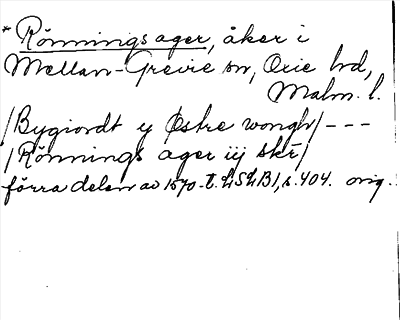 * Rönnings ager, åker i
Mellan-Grevie sn, Oxie hd,
Malm. l.
/Bygiordt y Østre wongh/ - - -
/Rönnings ager iij skr/
förra delen av 1570-t. LSLB1, s. 404. orig.